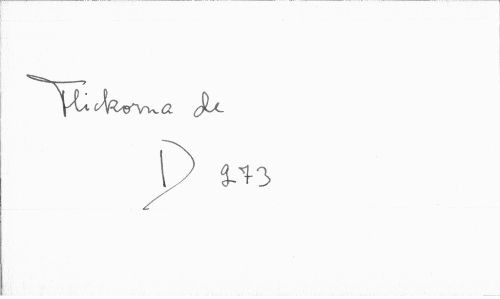 Flickorna de
D 273